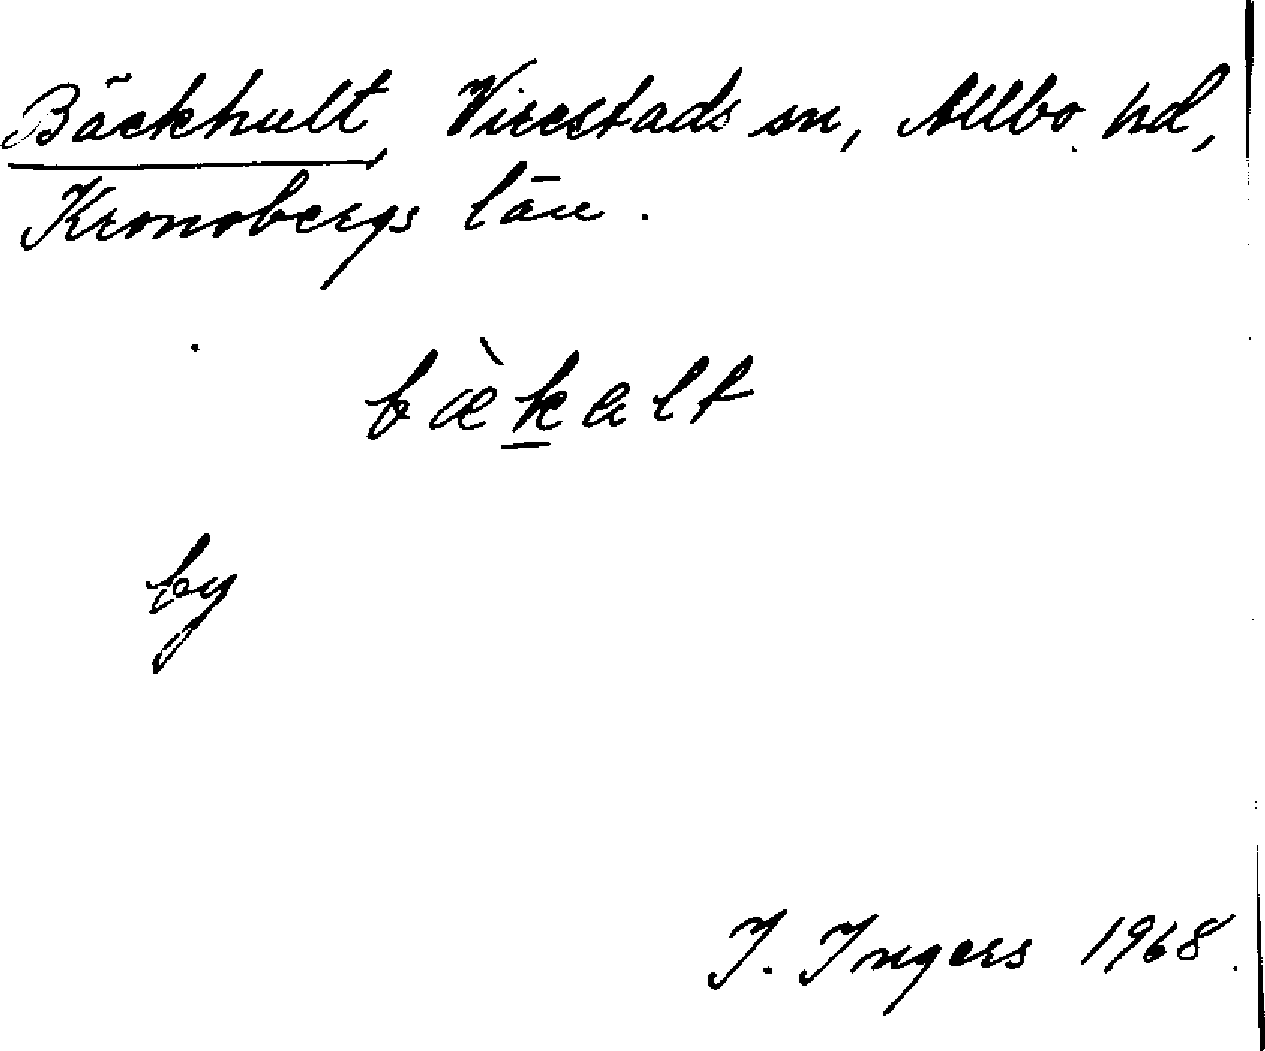 Bäckhult, Virestads sn, Allbo hd,
Kronobergs län.
bæ̀k̲alt
by
I. Ingers 1968.